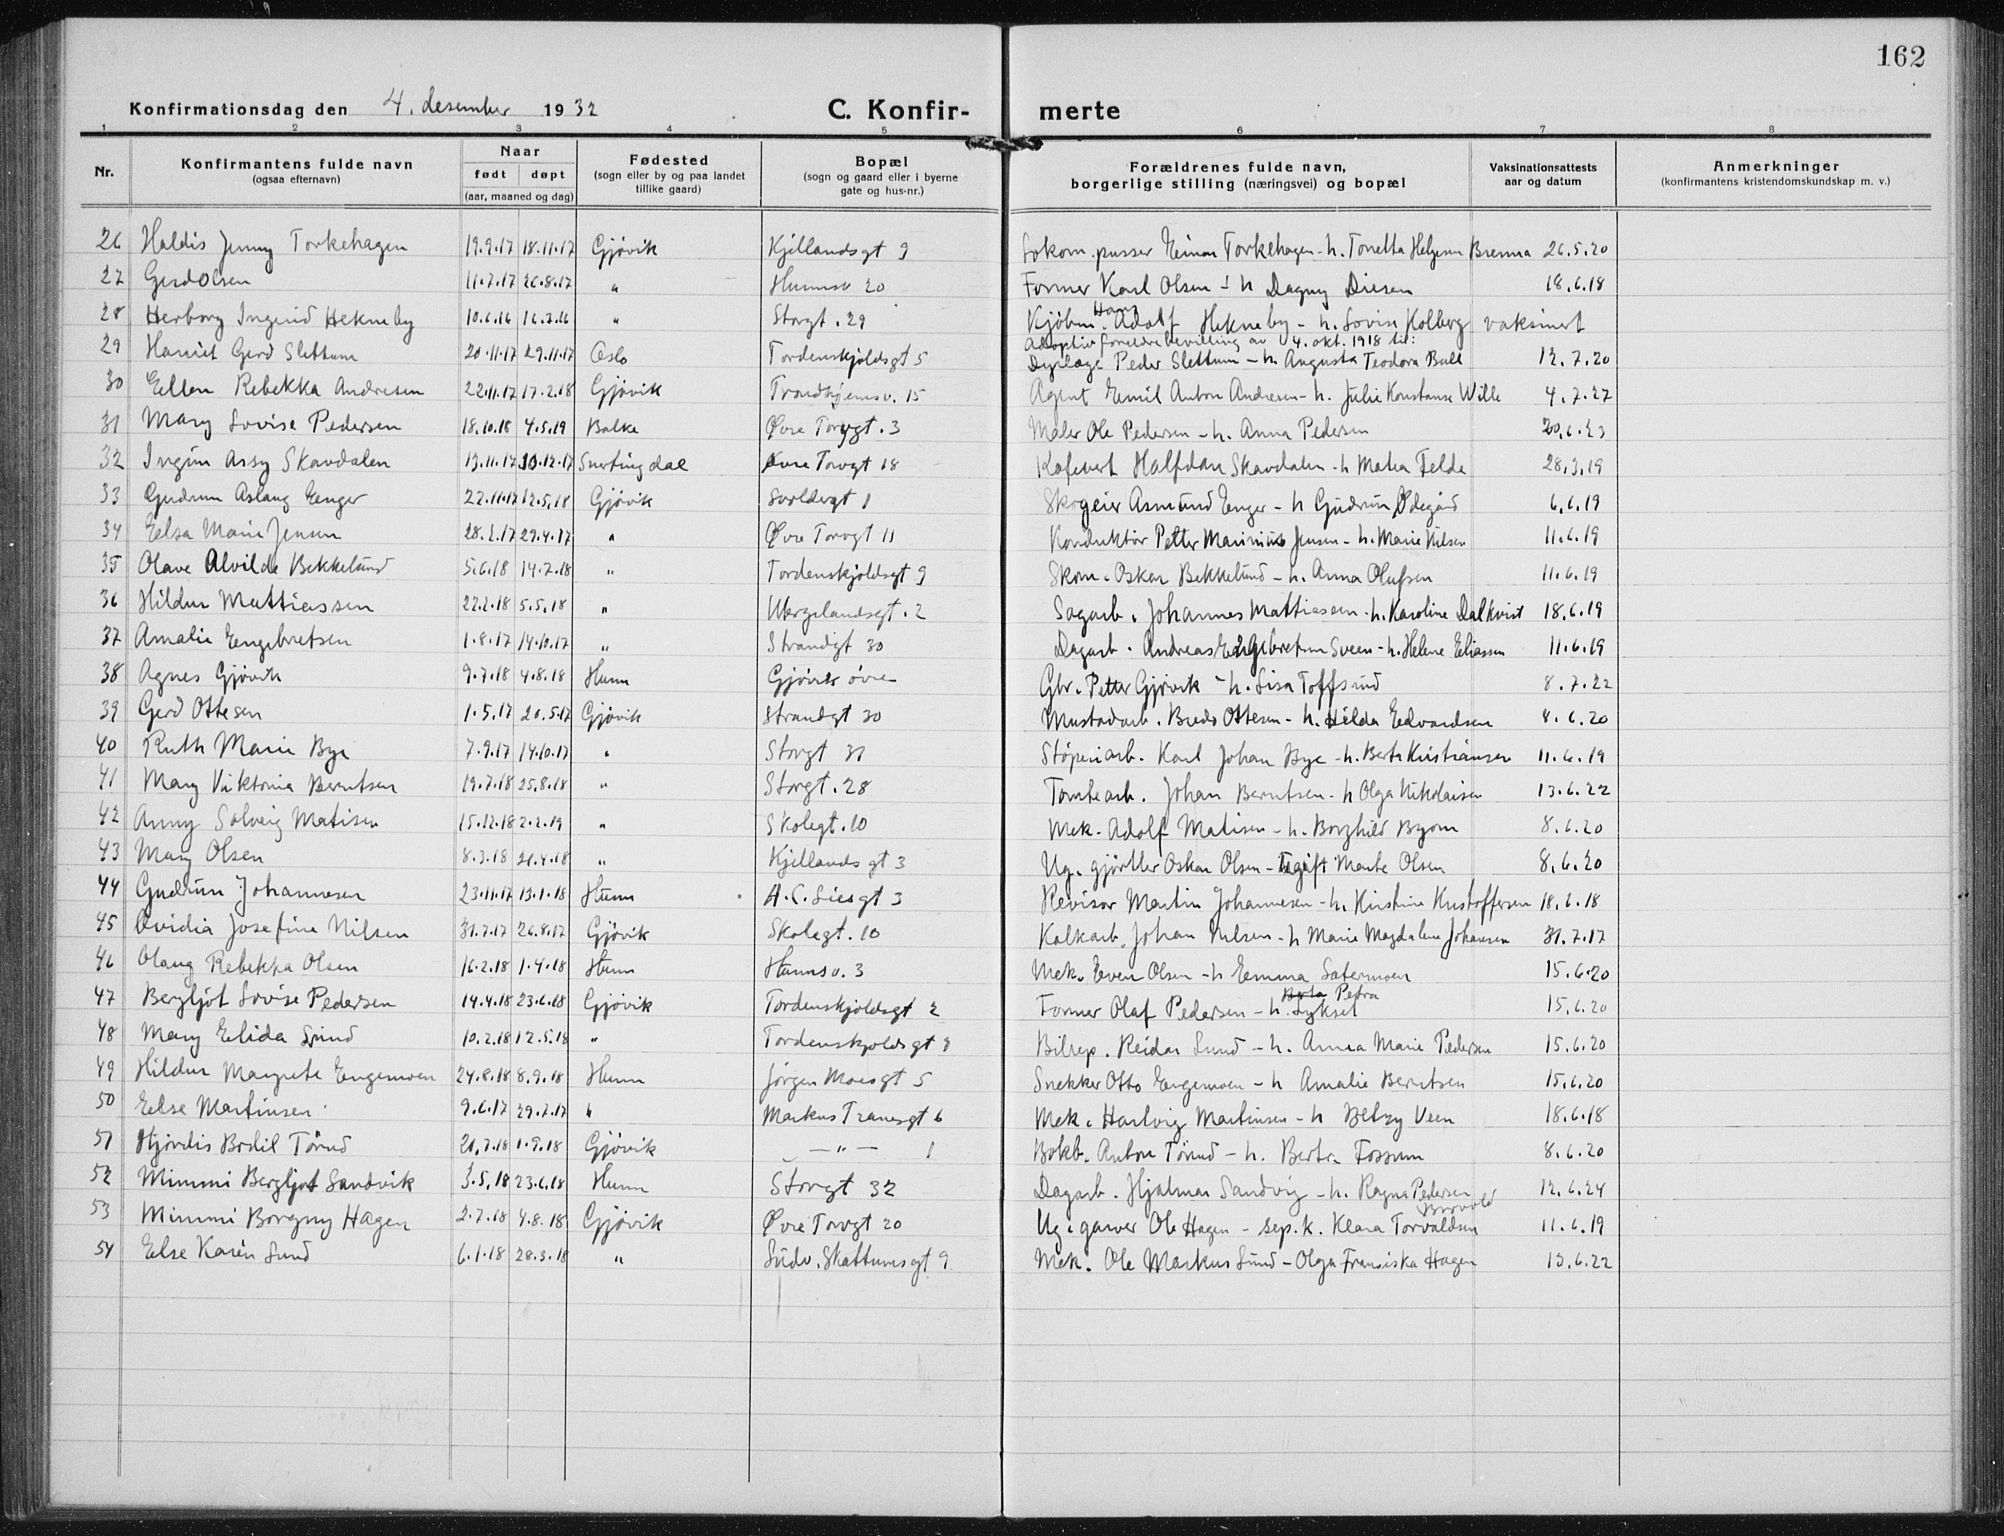 162
Konfirmationsdag den 4. desember 1932 C. Konfir- merte
1 2 3 4 5 6 7 8
Nr. Konfirmantens fulde navn (ogsaa efternavn) Naar født døpt (aar, maaned og dag) Fødested (sogn eller by og paa landet tillike gaard) Bopæl (sogn og gaard eller i byerne gate og hus-nr.) Forældrenes fulde navn, borgerlige stilling (næringsvei) og bopæl Vaksinationsattests aar og datum Anmerkninger (konfirmantens kristendomskundskap m. v.)
26 Haldis Jenny Torkehagen 19.9.17 18.11.17 Gjøvik Kjellandsgt 9 Lokom.pusser Einar Torkehagen - h. Tonetta Helgesen Brenna 26.5.20
27 Gerd Olsen 11.7.17 26.8.17 " Hunnsv 20 Former Karl Olsen - h Dagny Diesen 18.6.18
28 Herborg Ingerid Hekneby 10.6.16 16.7.16 " Storgt. 29 Kjøbm. Hans Adolf Hekneby - h. Lovise Kolberg vaksinert
29 Harriet Gerd Slettum 20.11.17 29.11.17 Oslo Tordenskjoldsgt 5 Adoptivforeldre bevilling av 4. okt. 1918 til: Dyrlæge Peder Slettum - h Augusta Teodora Bull 12.7.20
30 Ellen Rebekka Andresen 22.11.17 17.2.18 Gjøvik Trondhjemsv. 15 Agent Emil Anton Andresen - h. Julie Konstanse Wille 4.7.27
31 Mary Lovise Pedersen 18.10.18 4.5.19 Balke Øvre Torvgt. 3 Maler Ole Pedersen - h. Anna Pedersen 20.6.23
32 Ingun Assy Skavdalen 13.11.17 30.12.17 Snertingdal Øvre Torvgt 18 Kafevert Halfdan Skavdalen - h Matea Felde 28.3.19
33 Gudrun Aslaug Enger 22.11.17 12.5.18 Gjøvik Svoldergt 1 Skogeier Asmund Enger - h Gudrun Ødegård 6.6.19
34 Elsa Marie Jensen 28.2.17 29.4.17 " Øvre Torvgt 11 Konduktør Petter Marinius Jensen - h. Marie Nilsen 11.6.19
35 Olave Alvilde Bekkelund 5.6.18 14.7.18 " Tordenskjoldsgt 9 Skom. Oskar Bekkelund - h. Anna Olufsen 11.6.19
36 Hildur Mattiassen 22.2.18 5.5.18 " Wergelandsgt. 2 Sagarb. Johannes Mattiassen - h. Karoline Dalkvist 18.6.19
37 Amalie Engebretsen 1.8.17 14.10.17 " Strandgt 30 Dagarb. Andreas Engebretsen Sveen - h. Helene Eliassen 11.6.19
38 Agnes Gjøvik 9.7.18 4.8.18 Hunn Gjøvik øvre Gbr. Petter Gjøvik - h. Lisa Toffsrud 8.7.22
39 Gerd Ottesen 1.5.17 20.5.17 Gjøvik Strandgt 30 Mustadarb. Bredo Ottesen - h. Hilda Edvardsen 8.6.20
40 Ruth Marie Bye 7.9.17 14.10.17 " Storgt 31 Støperiarb. Karl Johan Bye - h. Berte Kristiansen 11.6.19
41 Mary Viktoria Berntsen 19.7.18 25.8.18 " Storgt. 28 Tomtearb. Johan Berntsen - h Olga Nikolaisen 13.6.22
42 Anny Solveig Matisen 15.12.18 2.2.19 " Skolegt. 10 Mek. Adolf Matisen - h. Borghild Byom 8.6.20
43 Mary Olsen 8.3.18 21.4.18 " Kjellandsgt 3 Ug. gjørtler Oskar Olsen - Ugift Marte Olsen 8.6.20
44 Gudrun Johannesen 23.11.17 13.1.18 Hunn H.C. Liesgt 3 Revisor Martin Johannesen - h. Kirstine Kristoffersen 18.6.18
45 Ovidia Josefine Nilsen 31.7.17 26.8.17 Gjøvik Skolegt. 10 Kalkarb. Johan Nilsen - h Marie Magdalene Johansen 31.7.17
46 Olaug Rebekka Olsen 16.2.18 1.4.18 Hunn Hunnsv. 3 Mek. Even Olsen - h Emma Sætermoen 15.6.20
47 Bergljot Lovise Pedersen 14.4.18 23.6.18 Gjøvik Tordenskjoldsgt 2 Former Olaf Pedersen - h. Berta Petra Lykset 15.6.20
48 Mary Elida Lund 10.2.18 12.5.18 " Tordenskjoldsgt 8 Bilrep. Reidar Lund - h. Anna Marie Pedersen 15.6.20
49 Hildur Margrete Engemoen 24.8.18 8.9.18 Hunn Jørgen Moesgt 5 Snekker Otto Engemoen - h Amalie Berntsen 15.6.20
50 Else Martinsen 9.6.17 29.7.17 " Markus Tranesgt 6 Mek. Hartvig Martinsen - h Betzy Veen 18.6.18
51 Hjørdis Bodil Tørud 21.7.18 1.9.18 Gjøvik " — " — 1 Bokb. Anton Tørud - h. Berta Fossum 8.6.20
52 Mimmi Bergljot Sandvik 3.5.18 23.6.18 Hunn Storgt 32 Dagarb. Hjalmar Sandvig - h. Ragna Pedersen 12.6.24
53 Mimmi Borgny Hagen 2.7.18 4.8.18 Gjøvik Øvre Torvgt 20 Ug. garver Ole Hagen - sep. k. Klara Torvaldsen 11.6.19
54 Else Karen Lund 6.1.18 28.3.18 " Ludv. Skattumsgt 9 Mek. Ole Markus Lund - Olga Fransiska Hagen 13.6.22